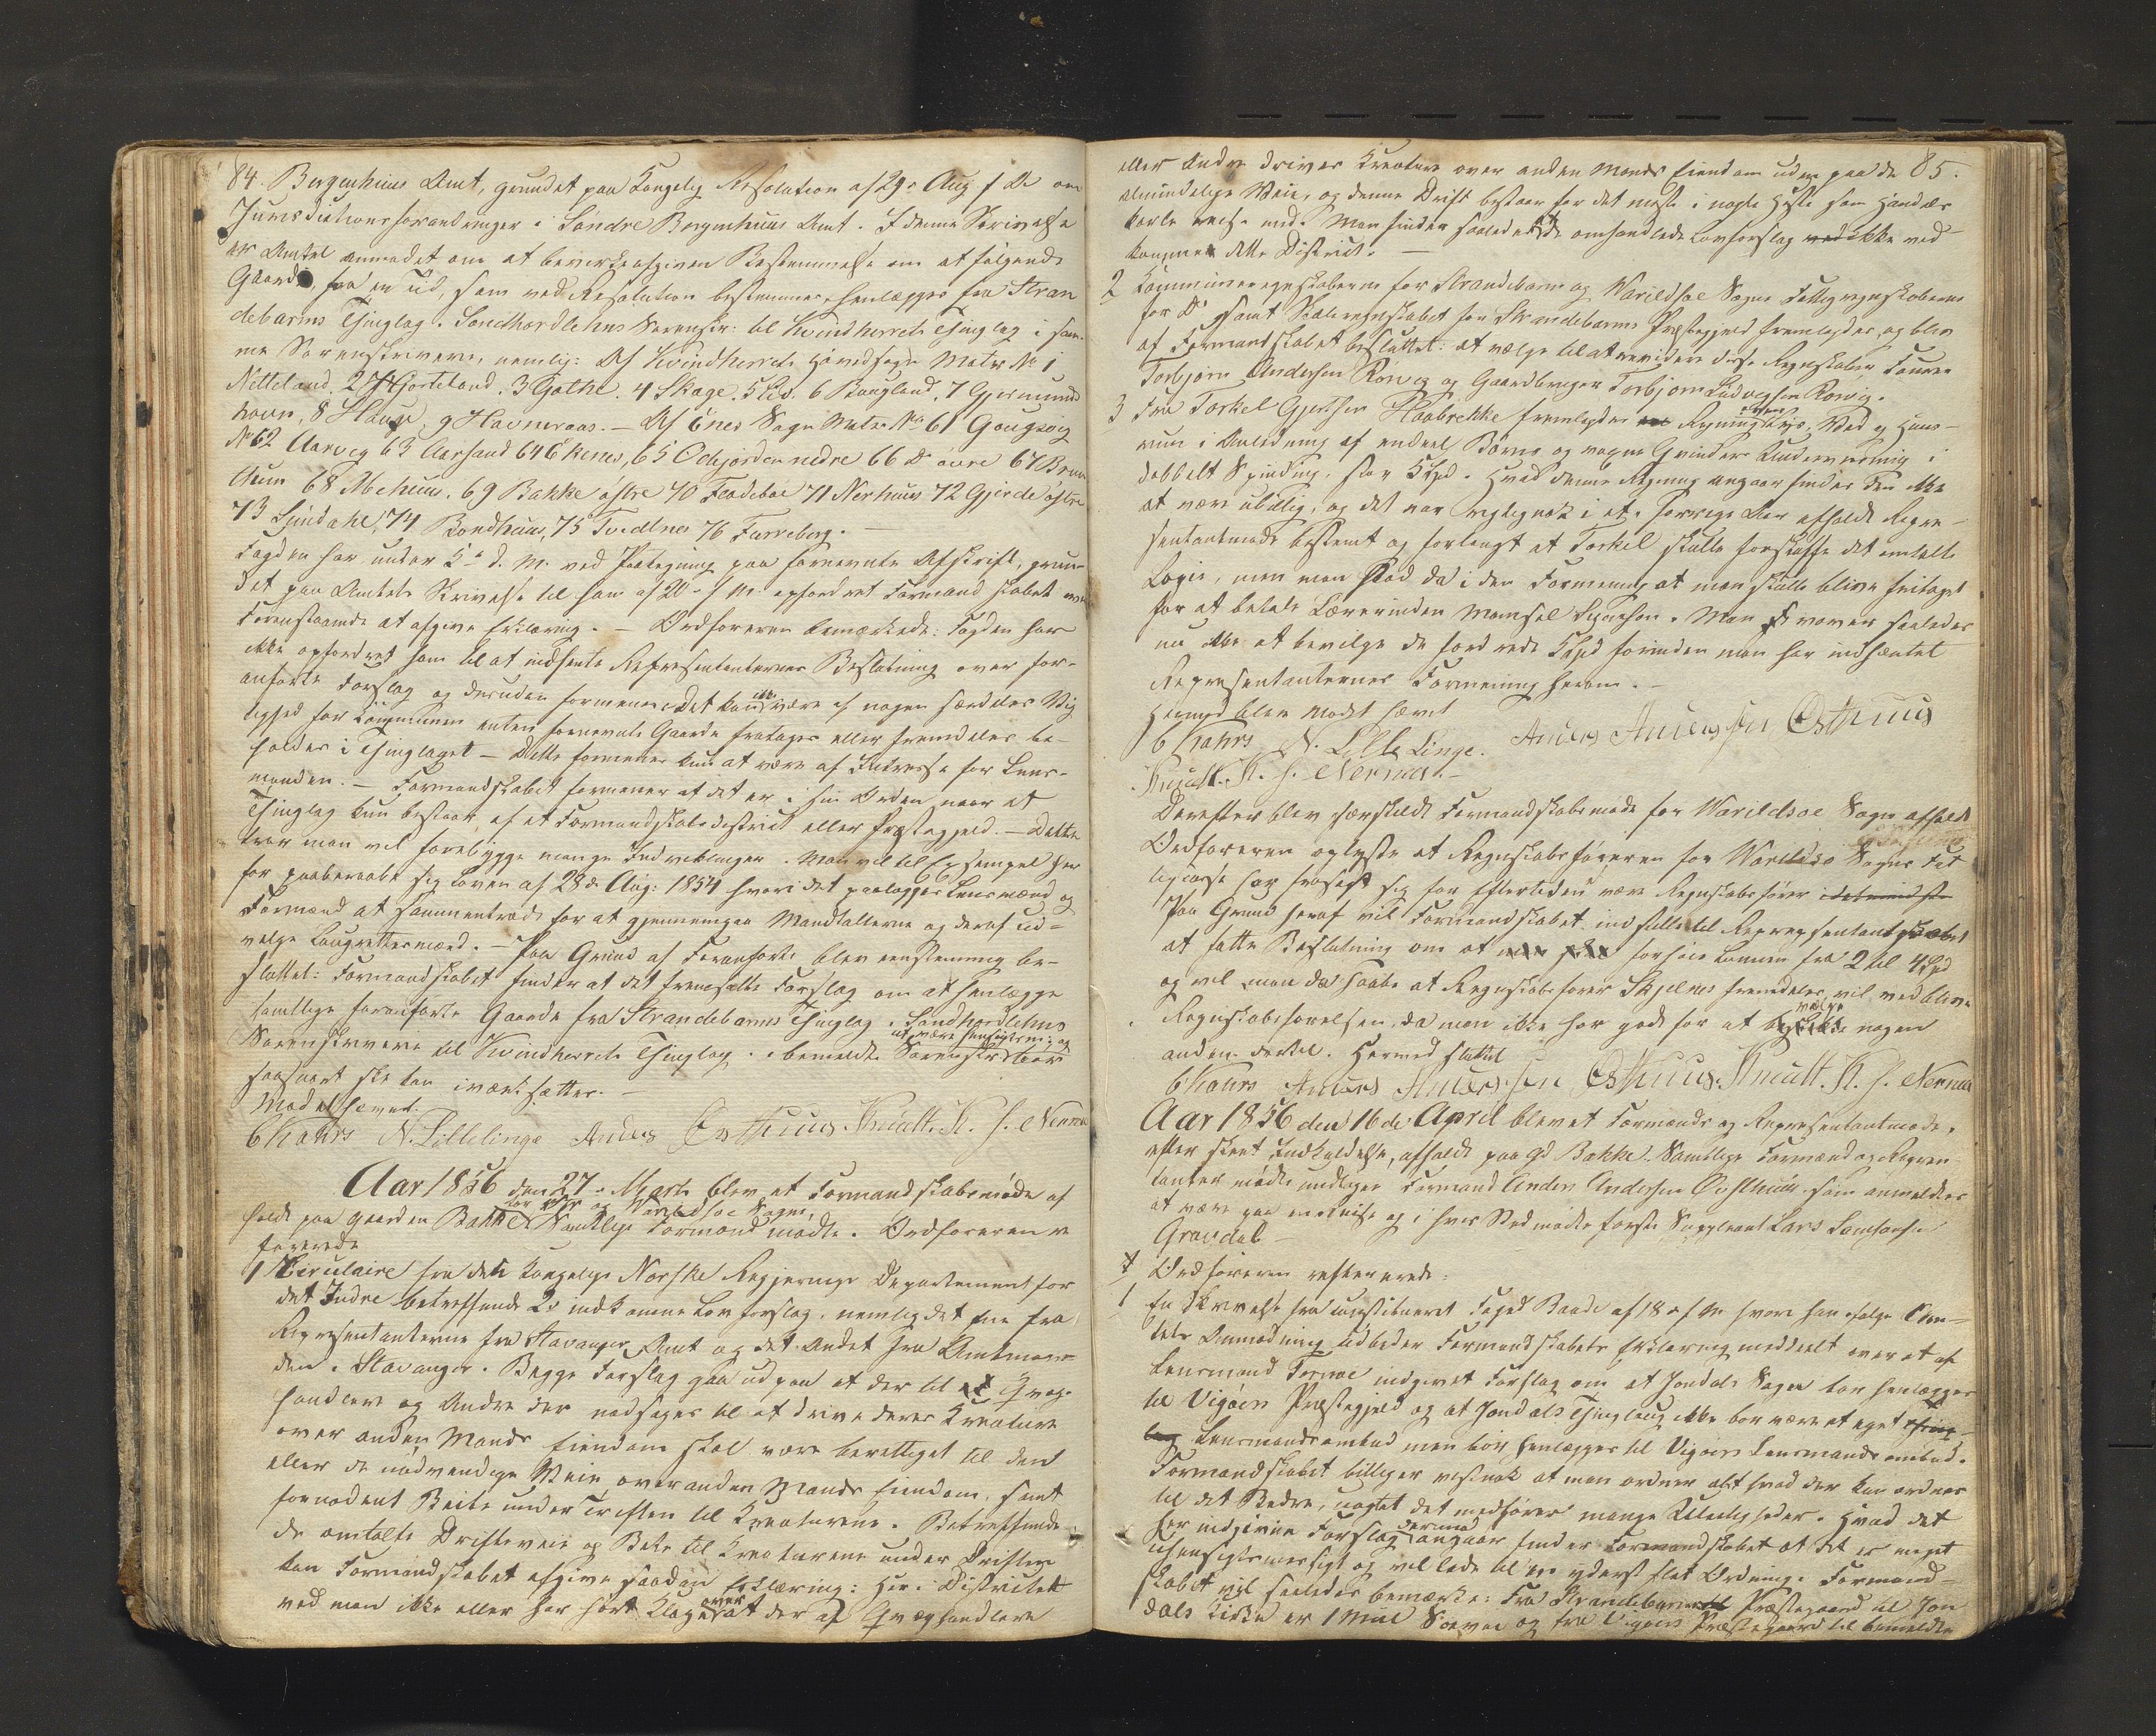 84. Bergenhuus Amt, grundet paa Kongelig Resolution af 29de Aug f. A. om
Jurisdictionsforandringer i Søndre Bergenhuus Amt. I denne Skrivelse
er Amtet anmodet om at bevirke afgiven Bestemmelse om at følgende
Gaarde, fra en Tid, som ved Resolution bestemmes, henlægges fra Stran
debarms Thinglag, Søndhordlehns Sorenskr: til Kvindherrets Thinglag i sam-
me Sorenskriveri, nemlig: Af Kvindherrets Hovedsogn Matr No 1
Netteland, 2 Hjorteland, 3 Gothe, 4 Skage, 5 Lid, 6 Baugland, 7 Gjermund
havn, 8 Hauge, 9 Havneraas. – Af Ænes Sogn Matr No 61 Gougsvig
No 62 Aarvig 63 Aarsand 64 Ekenes, 65 Odejorden nedre 66 Do øvre 67 Bruu
Tuun 68 Mehuus, 69 Bakke østre 70 Fladebøe 71 Nerhuus 72 Gjerde østre
73 Sundahl, 74 Bondhuus, 75 Tvedtnes 76 Furreberg. –
Fogden har under 5te d. M. ved Paategning paa fornevnte Afskrift, grun-
det paa Amtets Skrivelse til ham af 20de f M. opfordret Formandskabet over
Forenstaaende at afgive Erklæring. – Ordføreren bemærkede: Fogden har
ikke opfordret ham til at indhente Representanternes Beslutning over for-
anførte Forslag og desuden formenes det kan ikke være af nogen særdeles Vig
tighed for Kommunen enten fornevnte Gaarde fratages eller fremdeles be-
holdes i Thinglaget – Dette formenes kun at være af Interesse for Lens-
manden. – Formandskabet formener at det er i sin Orden naar et
Thinglag kun bestaar af et Formandskabsdistrict eller Præstegjeld. – Dette
troer man vil forebygge mange Indviklinger. Man vil til Exempel her
for paaberaabe sig Loven af 28de Aug: 1854 hvori det paalægges Lensmænd og
Formænd at sammentræde for at gjennemgaa Mandtallerne og deraf ud-
vælge Laugrettesmænd. – Paa Grund af Foranførte blev eenstemmig be-
sluttet: Formandskabet finder at det fremsatte Forslag om at henlægge
samtlige foranførte Gaarde fra Strandebarms Thinglag, Søndhordlehns
Sorenskriveri til Kvindherrets Thinglag i bemeldte Sorenskr: at være hensigtsm: og bør
saasnart ske kan iværksættes. –
Mødet hævet.
C Kahrs N. Lillelinge Anders Østhuus Knudt K. S. Nerhus
Aar 1856 den 27de Marts blev et Formandskabsmøde af
holdt paa gaarden Bakke for Str og Varildsøe Sogne, Samtlige Formænd mødte. Ordføreren re
fererede
1 Circulaire fra det kongelige Norske Regjerings Departement for
det Indre betreffende 2de indkomne Lovforslag, nemlig det ene fra
Representanterne fra Stavanger Amt og det Andet fra Amtman-
den i Stavanger. Begge Forslag gaa ud paa at der til Qvæg-
handlere og Andre der nødsages til at drive deres Kreature
over anden Mands Eiendom skal være berettiget til den
eller de nødvendige Veie over anden Mands Eiendom, samt
fornødent Beite under Driften til Kreaturene. Betreffende
de omtalte Drifteveie og Beite til Kreaturene under Driften
kan Formandskabet afgive saadan Erklæring: Her i Districtet
ved man ikke eller har hørt Klage over at der af Qvæghandlere
85.
eller Andre drives Kreature over anden Mands Eiendom uden paa de
almindelige Veie, og denne Drift bestaar for det meste i nogle Heste som Handels
karle reise med. Man finder saaledes at de omhandlede Lovforslag ikke ved
kommer dette District. –
2 Kommuneregnskaberne for Strandebarm og Varildsøe Sogne Fattigregnskaberne
for Do samt Skoleregnskabet for Strandebarms Præstegjeld fremlagdes, og blev
af Formandskabet besluttet: at vælge til at revidere disse Regnskaber Faures
Torbjørn Andersen Rørvig og Gaardbruger Torbjørn Ludvigsen Rørvig.
3 Fra Torkel Gjertsen Haabrekke fremlagdes Regning over Lys, Ved og Huus-
rum i Anledning af endeel Børns og vogne Qvinders Undervisning i
dobbelt Spinding, stor 5 Spd. Hvad denne Regning angaar findes den ikke
at være ubillig, og det var vigtignok i et forrige Aar afholdt Repre-
sentantmøde bestemt og forlangt at Torkel skulle forskaffe det omtalte
Logie, men man stod da i den Formening at man skulle blive fritaget
for at betale Lærerinden Mamsel Sigarhson. Man vover saaledes
nu ikke at bevilge de fordrede 5 Spd forinden man har indhentet
Representanternes Formening herom. –
Hermed blev Mødet hævet
C Kahrs N. Lille Linge. Anders Andersen Østhuus
Knudt. K. S. Nerhus. –
Derefter blev særskildt Formandskabsmøde for Varildsøe Sogn afholdt
Ordføreren oplyste at Regnskabsføreren for Varildsø Sogns Fat
tigcasse har frasagt sig for Eftertiden være Regnskabsfører
Paa Grund heraf vil Formandskabet indstille til Representantskabet
at fatte Beslutning om at forhøie Lønnen fra 2 til 4 Spd
og vil man da haabe at Regnskabsfører Skjelnes fremdeles vil vedblive
Regnskabsførelsen, da man ikke har godt for at vælge nogen
anden dertil. Hermed sluttet
C Kahrs Anders Andersen Østhuus. Knudt. K. S. Nerhus
Aar 1856 den 16de April blev et Formænds og Representantmøde,
efter skeet Indkaldelse, afholdt paa Gd Bakke. Samtlige Formænd og Repræsen
tanter mødte undtagen Formand Anders Andersen Østhuus som anmeldtes
at være paa reise og i hvis Sted mødte første Supleant Lars Samsonsen
Gravdal –
Ordføreren refererede:
1 En Skrivelse fra constitueret Foged Baade af 18de f M. hvori han ifølge Am-
tets Anmodning udbeder Formandskabets Erklæring meddeelt over et af
Lensmand Tornøe indgivet Forslag om at Jondals Sogn bør henlægges
til Vigøers Præstegjeld og at Jondals Thinglaug ikke bør være et eget
Lensmandsombud men bør henlægges til Vigøers Lensmandsombud.
Formandskabet billiger vistnok at man ordner alt hvad der kan ordnes
til det Bedre, uagtet det medfører mange Uleiligheder. Hvad det
her indgivne Forslag derimod angaar finder Formandskabet at det er meget
uhensigtsmæssigt og vil lede til en yderst slet Ordning. Formand-
skabet vil saaledes bemærke: Fra Strandebarms Præstegaard til Jon
dals Kirke er 1 Miil Søevei og fra Vigøers Præstegaard til bemeldte